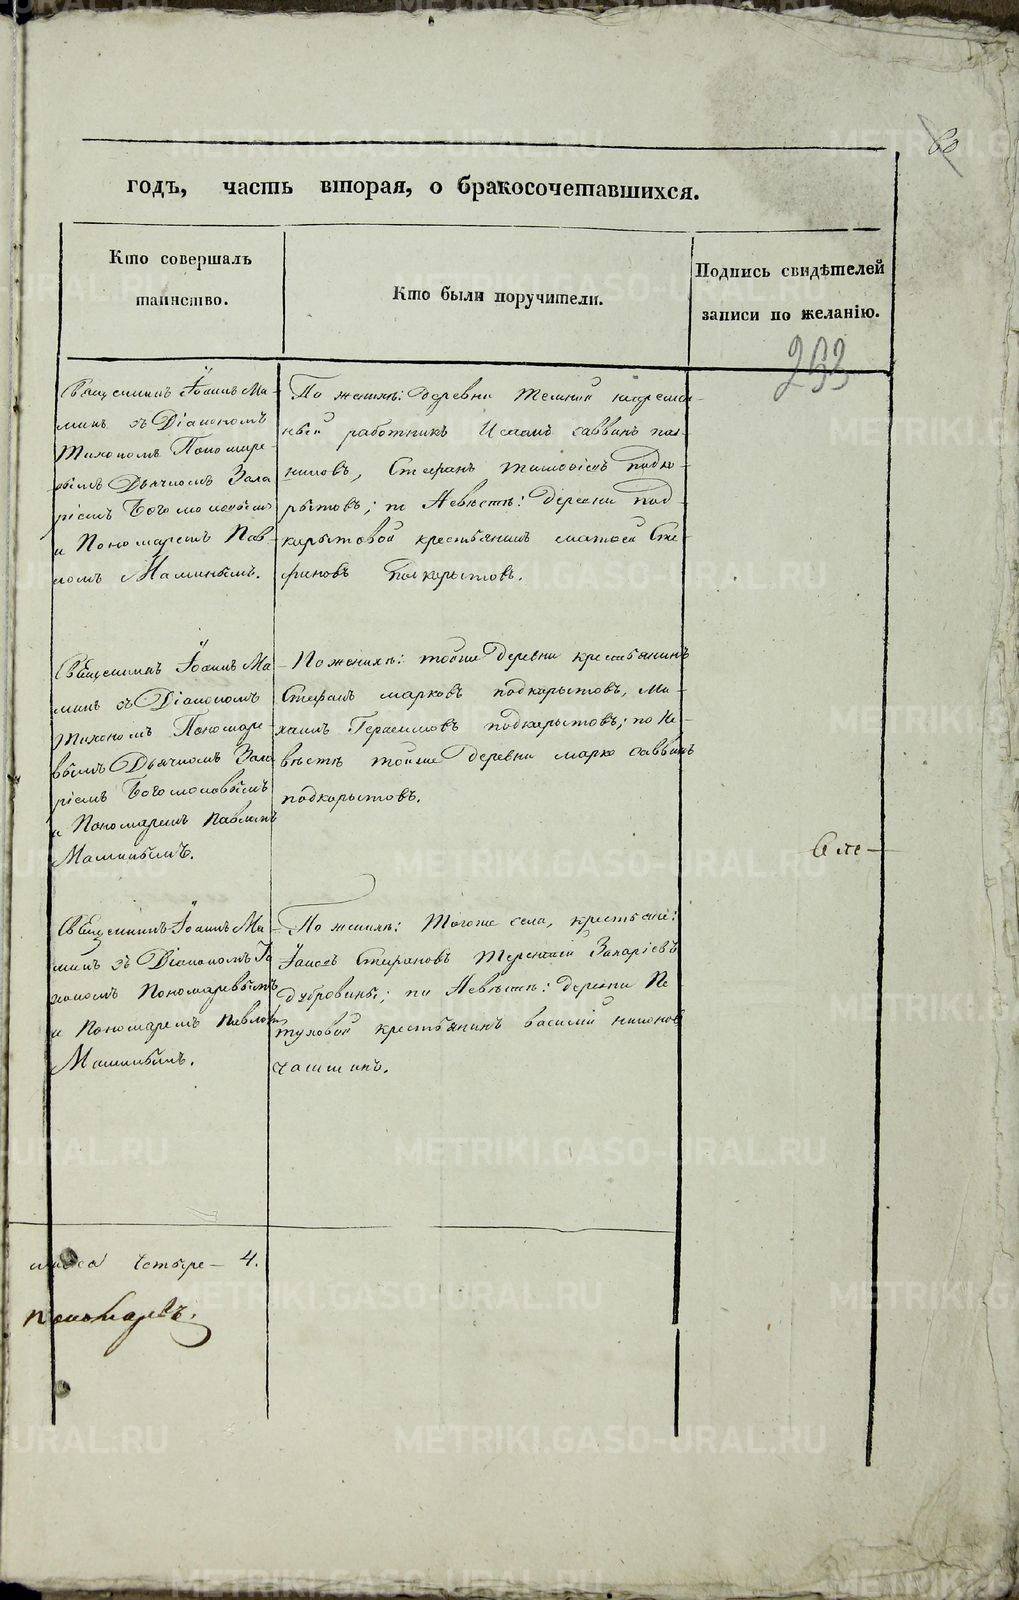 60
годъ, часть вторая, о бракосочетавшихся.
Кто совершалъ
таинство.
Кто были поручители.
Подпись свидѣтелей
записи по желанію.
Священникъ Іоаннъ Ма-
минъ съ Діакономъ
Тихономъ Пономаре-
вымъ Дьячкомъ Заха
ріемъ Богомоловымъ
и Пономаремъ Пав-
ломъ Маминымъ.
По женихѣ: деревни
ный работникъ Исаакъ Саввинъ
Стефанъ Подко-
рытовъ; по Невѣстѣ: деревни Под-
корытовой крестьянинъ Матвей Сте-
фановъ Подкорытовъ.
Священникъ Іоаннъ Ма
минъ съ Діакономъ
Тихономъ Пономаре-
вымъ Дьячкомъ Заха
ріемъ Богомоловымъ
и Пономаремъ Павломъ
Маминымъ.
По женихѣ: тойже деревни крестьянинъ
Стефанъ Марковъ Подкорытовъ, Ми-
хаилъ Герасимовъ Подкорытовъ; по Не-
вѣстѣ тойже деревни Марко Саввинъ
Подкорытовъ.
Священникъ Іоаннъ Ма
минъ съ Діакономъ Ти
хономъ Пономаревымъ
и Пономаремъ Павломъ
Маминымъ.
По женихѣ: Тогоже села, крестьяне:
Стефановъ Терентій Захаріевъ
Дубровины; по Невѣстѣ: деревни Пе
туховой крестьянинъ Василій
четыре — 4.
Пономаревъ.
METRIKI.GASO-URAL.RU